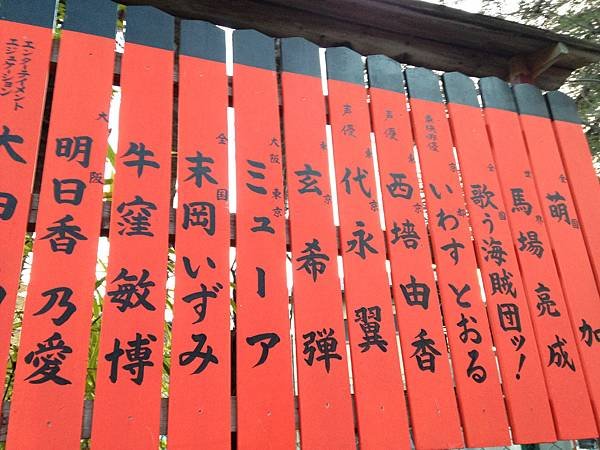 加
全国
萌
世界
馬場亮成
全国
歌う海賊団ッ!
京都
いわすとおる
声優
東京
西培由香
声優
東京
代永翼
東京
玄希弾
大阪 東京
ミューア
全国
末岡いずみ
牛窪敏博
大阪
明日香乃愛
エンターテイメント
エジュケーション